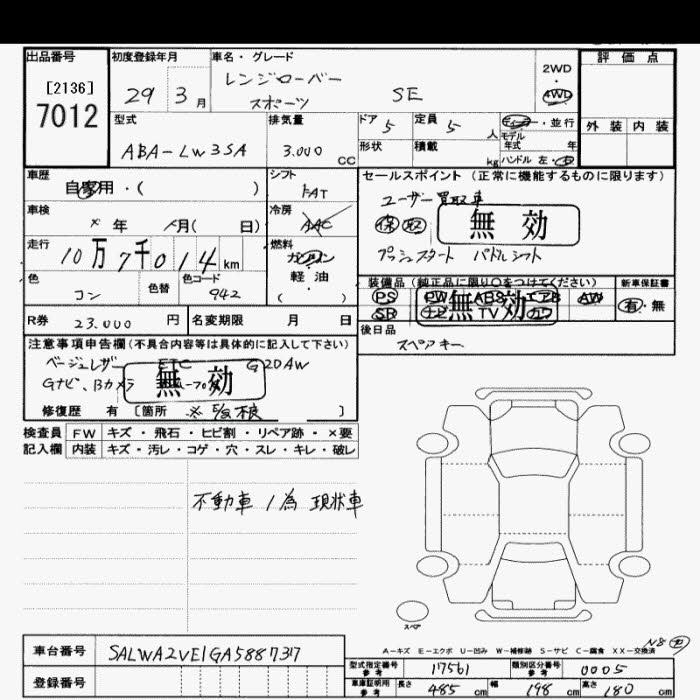 出品番号
[2136]
7012
初度登録年月
29 3月
車名・グレード
レンジローバー
スポーツ SE
2WD
・
4WD
評価点
外装 内装
型式
ABA-LW3SA
排気量
3.000 CC
ドア
5
定員
5 人
形状
積載
kg
ディーラー・並行
モデル
年式 年
ハンドル 左・右
車歴
自家用・( )
シフト
FAT
車検
年 月( 日)
冷房
AAC
走行
10万7千014 km
燃料
ガソリン
・
軽油
( )
色
コン
色替
色コード
942
R券 23.000 円
名変期限 月 日
セールスポイント (正常に機能するものに限ります)
ユーザー買取車
保 取
無効
プッシュスタート パドルシフト
装備品(純正品に限り○をつけてください)
PS PW ABS エアB AW
SR ナビ TV カワ
無効
新車保証書
有・無
後日品
スペアキー
注意事項申告欄(不具合内容等は具体的に記入して下さい)
ベージュレザー ETC G20AW
Gナビ、Bカメラ
無効
修復歴 有 [箇所 ]
検査員
記入欄
FW キズ・飛石・ヒビ割・リペア跡・×要
内装 キズ・汚レ・コゲ・穴・スレ・キレ・破レ
不動車ノ為 現状車
スペア
A-キズ E-エクボ U-凹み W-補修跡 S-サビ C-腐食 XX-交換済
車台番号 SALWA2VE1GA588737
登録番号
型式指定番号
参考
17561
類別区分番号
参考
0005
車庫証明用
参考
長さ 485 cm 幅 198 cm 高さ 180 cm